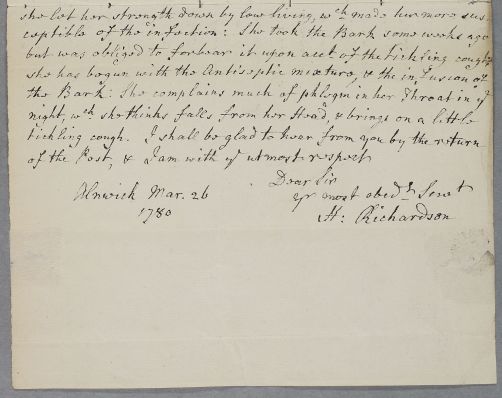 she let her strength down by low living, wch made her more sus
ceptible of the infection: She took the Bark some weeks ago
but was obliged to forbear it upon acct. of the tickling cough,
she has begun with the Antiseptic mixture, & the infusion of
the Bark. She complains much of phlegm in her Throat in ye
night, wch she thinks falls from her Head, & brings on a little
tickling cough. I shall be glad to hear from you by the return
of the Post, & I am with ye utmost respect
Dear Sir
Alnwick Mar. 26 yr most obedt. Servt
1780 H: Richardson